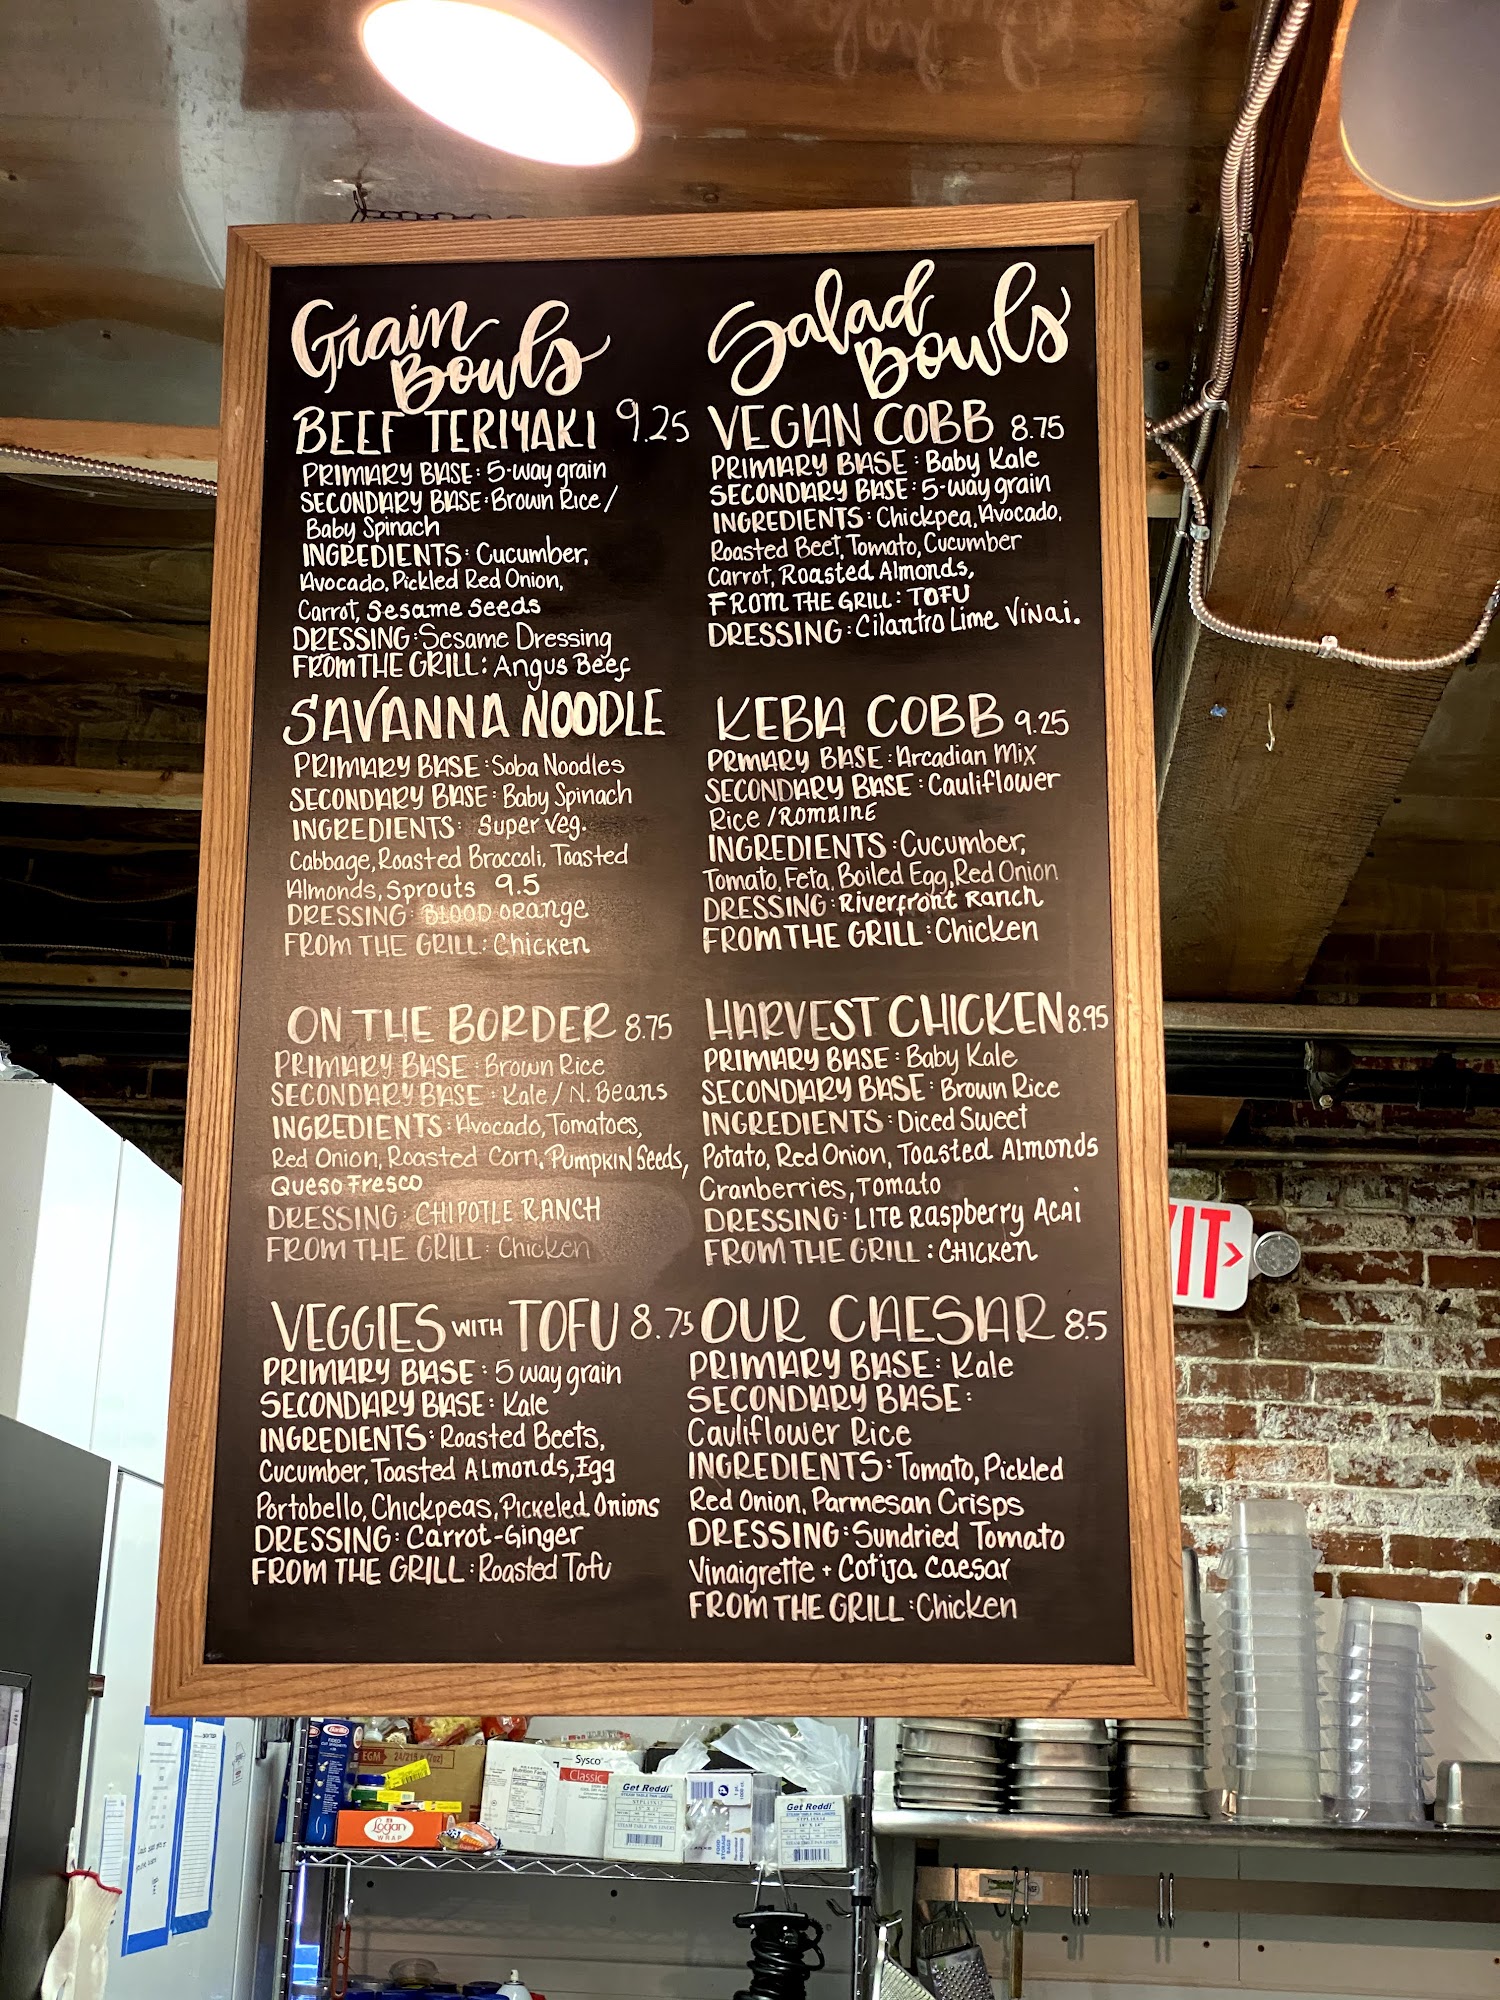 Grain
Bowls
BEEF TERIYAKI 9.25
PRIMARY BASE: 5-way grain
SECONDARY BASE: Brown Rice /
Baby Spinach
INGREDIENTS: Cucumber,
Avocado, Pickled Red Onion,
Carrot, Sesame Seeds
DRESSING: Sesame Dressing
FROM THE GRILL: Angus Beef
SAVANNA NOODLE
PRIMARY BASE: Soba Noodles
SECONDARY BASE: Baby Spinach
INGREDIENTS: Super Veg.
Cabbage, Roasted Broccoli, Toasted
Almonds, Sprouts 9.5
DRESSING: BLOOD ORange
FROM THE GRILL: Chicken
ON THE BORDER 8.75
PRIMARY BASE: Brown Rice
SECONDARY BASE: Kale / N. Beans
INGREDIENTS: Avocado, Tomatoes,
Red Onion, Roasted Corn, PUMPKIN Seeds,
Queso Fresco
DRESSING: CHIPOTLE RANCH
FROM THE GRILL: Chicken
VEGGIES WITH TOFU 8.75
PRIMARY BASE: 5 way grain
SECONDARY BASE: Kale
INGREDIENTS: Roasted Beets,
Cucumber, Toasted Almonds, Egg
Portobello, Chickpeas, Pickeled Onions
DRESSING: Carrot-Ginger
FROM THE GRILL: Roasted Tofu
Salad
Bowls
VEGAN COBB 8.75
PRIMARY BASE: Baby Kale
SECONDARY BASE: 5-way grain
INGREDIENTS: Chickpea, Avocado,
Roasted Beet, Tomato, Cucumber
Carrot, Roasted Almonds,
FROM THE GRILL: TOFU
DRESSING: Cilantro Lime Vinai.
KEBA COBB 9.25
PRMARY BASE: Arcadian Mix
SECONDARY BASE: Cauliflower
Rice / ROMAINE
INGREDIENTS: Cucumber,
Tomato, Feta, Boiled Egg, Red Onion
DRESSING: Riverfront Ranch
FROM THE GRILL: Chicken
HARVEST CHICKEN 8.95
PRIMARY BASE: Baby Kale
SECONDARY BASE: Brown Rice
INGREDIENTS: Diced Sweet
Potato, Red Onion, Toasted Almonds
Cranberries, Tomato
DRESSING: LITE Raspberry Acai
FROM THE GRILL: CHICKEN
OUR CAESAR 8.5
PRIMARY BASE: Kale
SECONDARY BASE:
Cauliflower Rice
INGREDIENTS: Tomato, Pickled
Red Onion, Parmesan Crisps
DRESSING: Sundried Tomato
Vinaigrette + Cotija Caesar
FROM THE GRILL: Chicken
IT
Barilla
EGM 24/215
Sysco
Classic
Nutrition Facts
Logan
WRAP
Get Reddi
STEAM TABLE PAN LINERS
FOOD STORAGE BAGS
Get Reddi
STEAM TABLE PAN LINERS